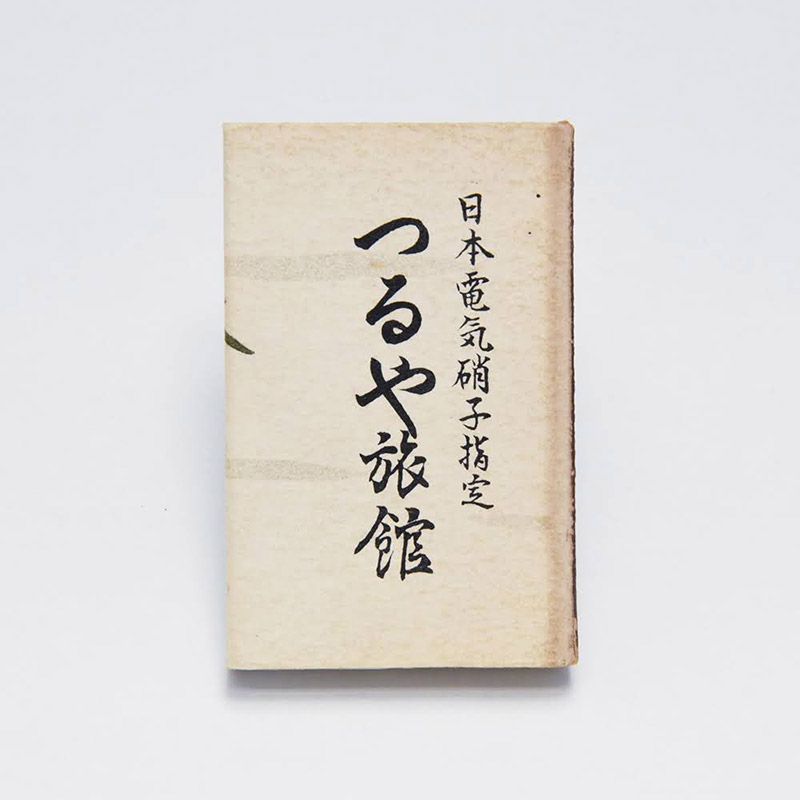 日本電気硝子指定
つるや旅館